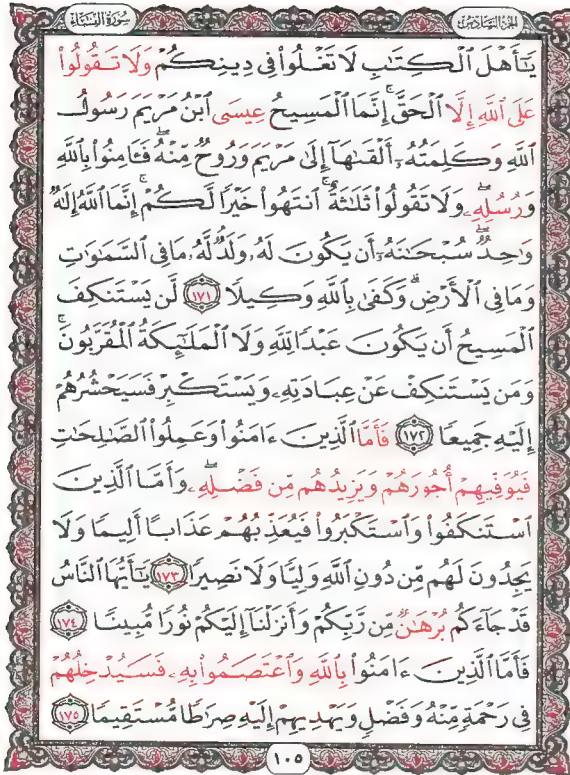 سُورَةُ النِّسَاءِ
الجُزْءُ السَّادِسُ
يَـٰٓأَهْلَ ٱلْكِتَـٰبِ لَا تَغْلُوا۟ فِى دِينِكُمْ وَلَا تَقُولُوا۟
عَلَى ٱللَّهِ إِلَّا ٱلْحَقَّ ۚ إِنَّمَا ٱلْمَسِيحُ عِيسَى ٱبْنُ مَرْيَمَ رَسُولُ
ٱللَّهِ وَكَلِمَتُهُۥٓ أَلْقَىٰهَآ إِلَىٰ مَرْيَمَ وَرُوحٌ مِّنْهُ ۖ فَـَٔامِنُوا۟ بِٱللَّهِ
وَرُسُلِهِۦ ۖ وَلَا تَقُولُوا۟ ثَلَـٰثَةٌ ۚ ٱنتَهُوا۟ خَيْرًا لَّكُمْ ۚ إِنَّمَا ٱللَّهُ إِلَـٰهٌ
وَٰحِدٌ ۖ سُبْحَـٰنَهُۥٓ أَن يَكُونَ لَهُۥ وَلَدٌ ۘ لَّهُۥ مَا فِى ٱلسَّمَـٰوَٰتِ
وَمَا فِى ٱلْأَرْضِ ۗ وَكَفَىٰ بِٱللَّهِ وَكِيلًا ١٧١ لَّن يَسْتَنكِفَ
ٱلْمَسِيحُ أَن يَكُونَ عَبْدًا لِّلَّهِ وَلَا ٱلْمَلَـٰٓئِكَةُ ٱلْمُقَرَّبُونَ ۚ
وَمَن يَسْتَنكِفْ عَنْ عِبَادَتِهِۦ وَيَسْتَكْبِرْ فَسَيَحْشُرُهُمْ
إِلَيْهِ جَمِيعًا ١٧٢ فَأَمَّا ٱلَّذِينَ ءَامَنُوا۟ وَعَمِلُوا۟ ٱلصَّـٰلِحَـٰتِ
فَيُوَفِّيهِمْ أُجُورَهُمْ وَيَزِيدُهُم مِّن فَضْلِهِۦ ۖ وَأَمَّا ٱلَّذِينَ
ٱسْتَنكَفُوا۟ وَٱسْتَكْبَرُوا۟ فَيُعَذِّبُهُمْ عَذَابًا أَلِيمًا وَلَا
يَجِدُونَ لَهُم مِّن دُونِ ٱللَّهِ وَلِيًّا وَلَا نَصِيرًا ١٧٣ يَـٰٓأَيُّهَا ٱلنَّاسُ
قَدْ جَآءَكُم بُرْهَـٰنٌ مِّن رَّبِّكُمْ وَأَنزَلْنَآ إِلَيْكُمْ نُورًا مُّبِينًا ١٧٤
فَأَمَّا ٱلَّذِينَ ءَامَنُوا۟ بِٱللَّهِ وَٱعْتَصَمُوا۟ بِهِۦ فَسَيُدْخِلُهُمْ
فِى رَحْمَةٍ مِّنْهُ وَفَضْلٍ وَيَهْدِيهِمْ إِلَيْهِ صِرَٰطًا مُّسْتَقِيمًا ١٧٥
١٠٥